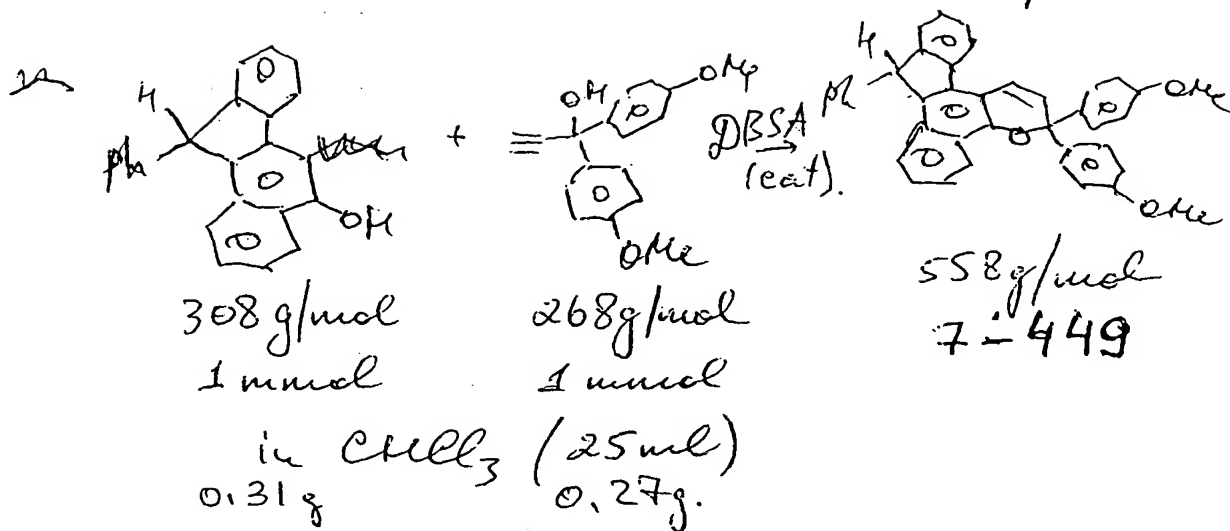 H
Ph
OH
+
≡
OH
OMe
OMe
DBSA
(cat).
H
Ph
O
OMe
OMe
308 g/mol 268g/mol 558g/mol
1 mmol 1 mmol 7-449
in CHCl3 (25ml)
0.31g 0.27g.